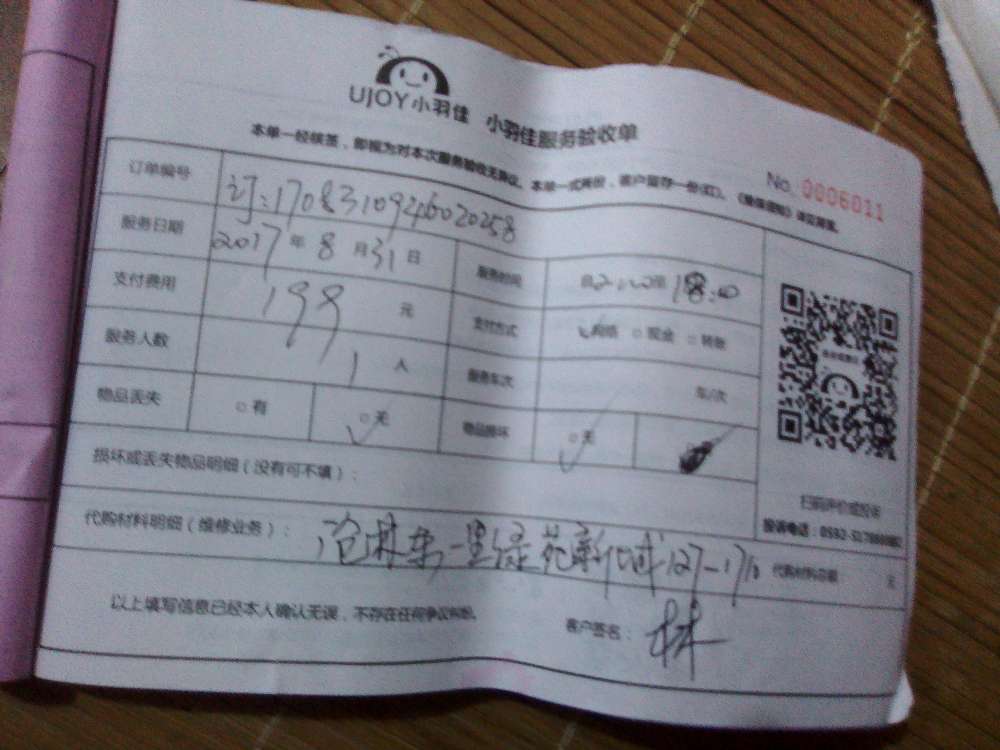 UJOY小羽佳 小羽佳服务验收单
本单一经核签，即视为对本次服务验收无异议。本单一式两份，客户留存一份(红)。
No. 0006011
订单编号 订:1708310946020258
服务日期 2017 年 8 月 31 日 服务时间 18:00
支付费用 199 元 支付方式 网络 □ 现金 □ 转账
服务人数 1 人 服务车次 车/次
物品丢失 □ 有 □ 无 物品损坏 □ 无
损坏或丢失物品明细（没有可不填）：
代购材料明细（维修业务）： 沧林东一里绿苑新城127-1710 代购材料总额： 元
扫码评价或投诉
投诉电话：0592-
以上填写信息已经本人确认无误，不存在任何争议纠纷。 客户签名： 林